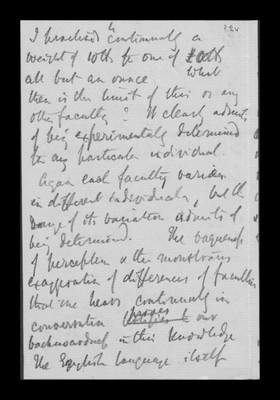 22v
I practised continually a
weight of 10lbs for one of 10lbs
all but an ounce. What
then is the limit of this or any
other faculty? It clearly admits
of being experimentally determined
for any particular individual.
Again each faculty varies
in different individuals, but the
range of its variation admits of
being determined. The vagueness
of perception & the monstrous
exaggeration of differences of faculties
that one hears continually in
conversation proves our
backwardness in this knowledge
The English language itself